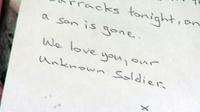 barracks tonight, on
a son is gone.
We love you, our
Unknown Soldier.
x